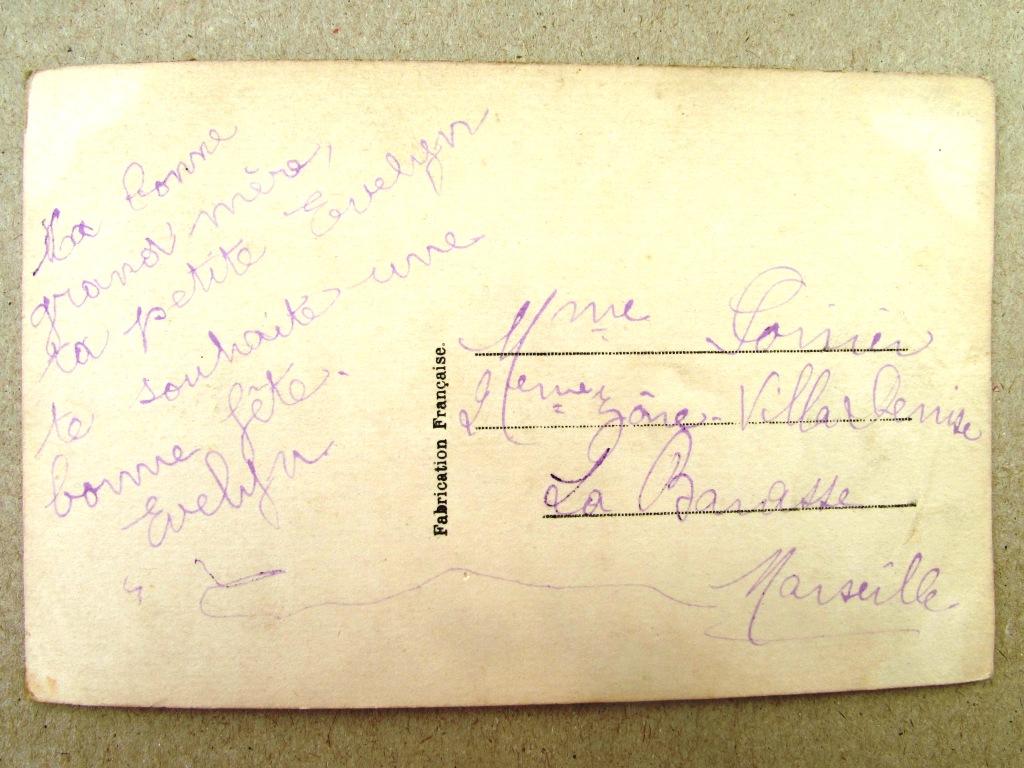 Ma bonne
grand mère,
ta petite Evelyn
te souhaite une
bonne fête.
Evelyn
Fabrication Française.
Mme
2ème zône - Villa Denise
La Barasse
Marseille